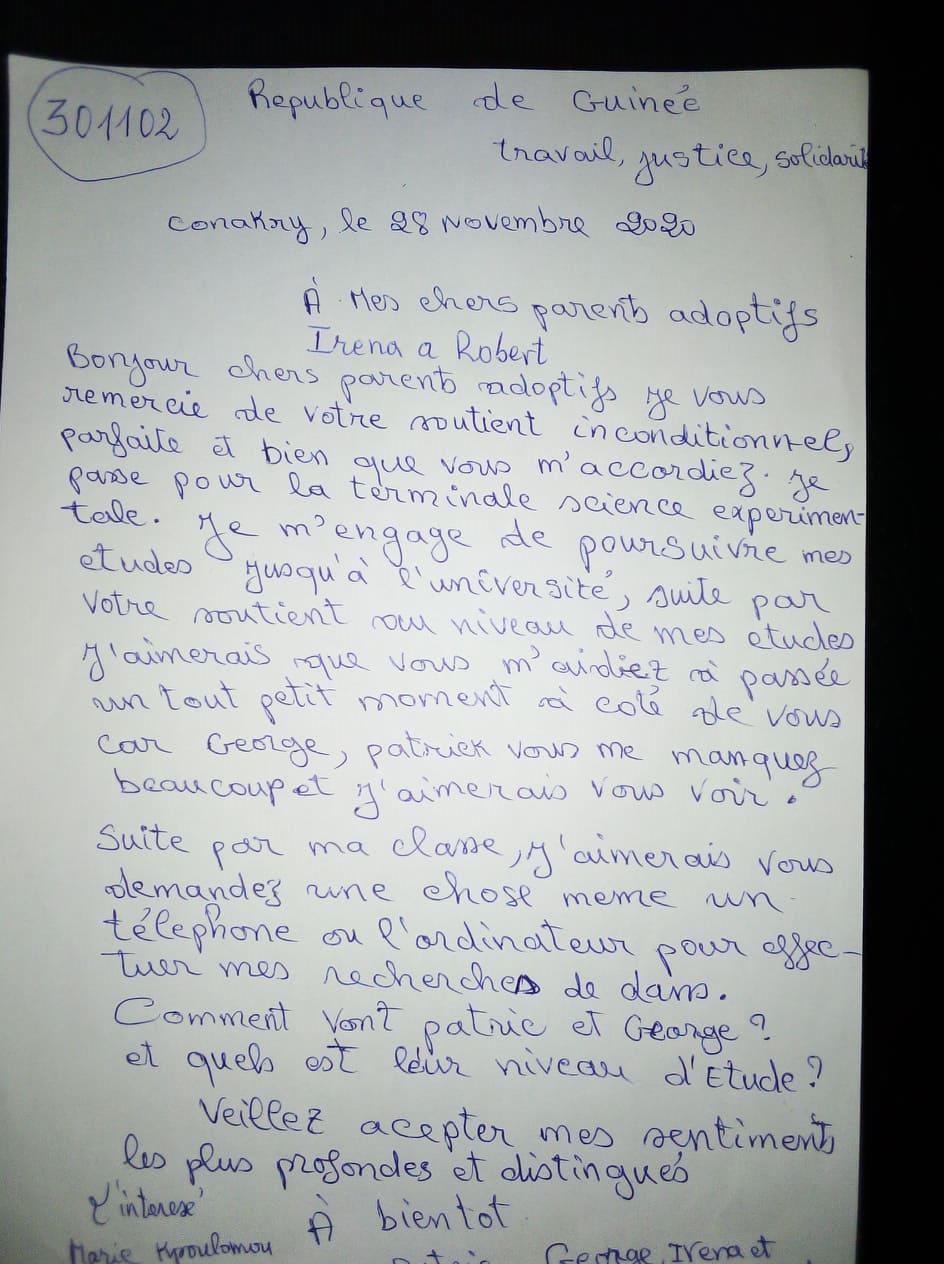 301102
Republique de Guineé
travail, justice, solidarité
Conakry, le 28 Novembre 2020
À Mes chers parents adoptifs
Irena a Robert
Bonjour chers parents adoptifs je vous
remercie de votre soutient inconditionnel,
parfaite et bien que vous m'accordiez. je
passe pour la terminale science experimen-
tale. Je m'engage de poursuivre mes
etudes jusqu'à l'université, suite par
votre soutient au niveau de mes etudes
J'aimerais que vous m'aidiez à passée
un tout petit moment à coté de vous
car George, patrick vous me manquez
beaucoup et j'aimerais vous voir.
Suite par ma classe, j'aimerais vous
demandez une chose meme un
télephone ou l'ordinateur pour effec-
tuer mes recherches de dans.
Comment vont patric et George?
et quels est leur niveau d'Etude?
Veillez acepter mes sentiments
les plus profondes et distingués
L'interesé
À bientot
Marie
George, Irena et